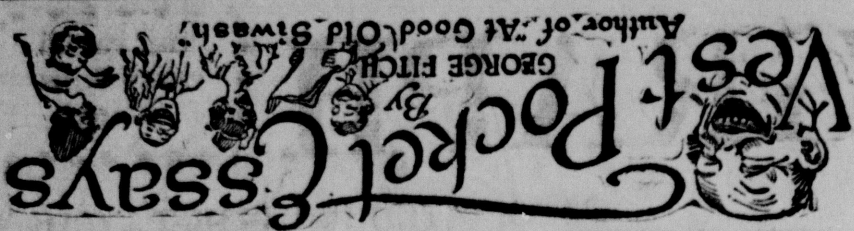 Vest Pocket Essays
By
GEORGE FITCH
Author of "At Good Old Siwash"